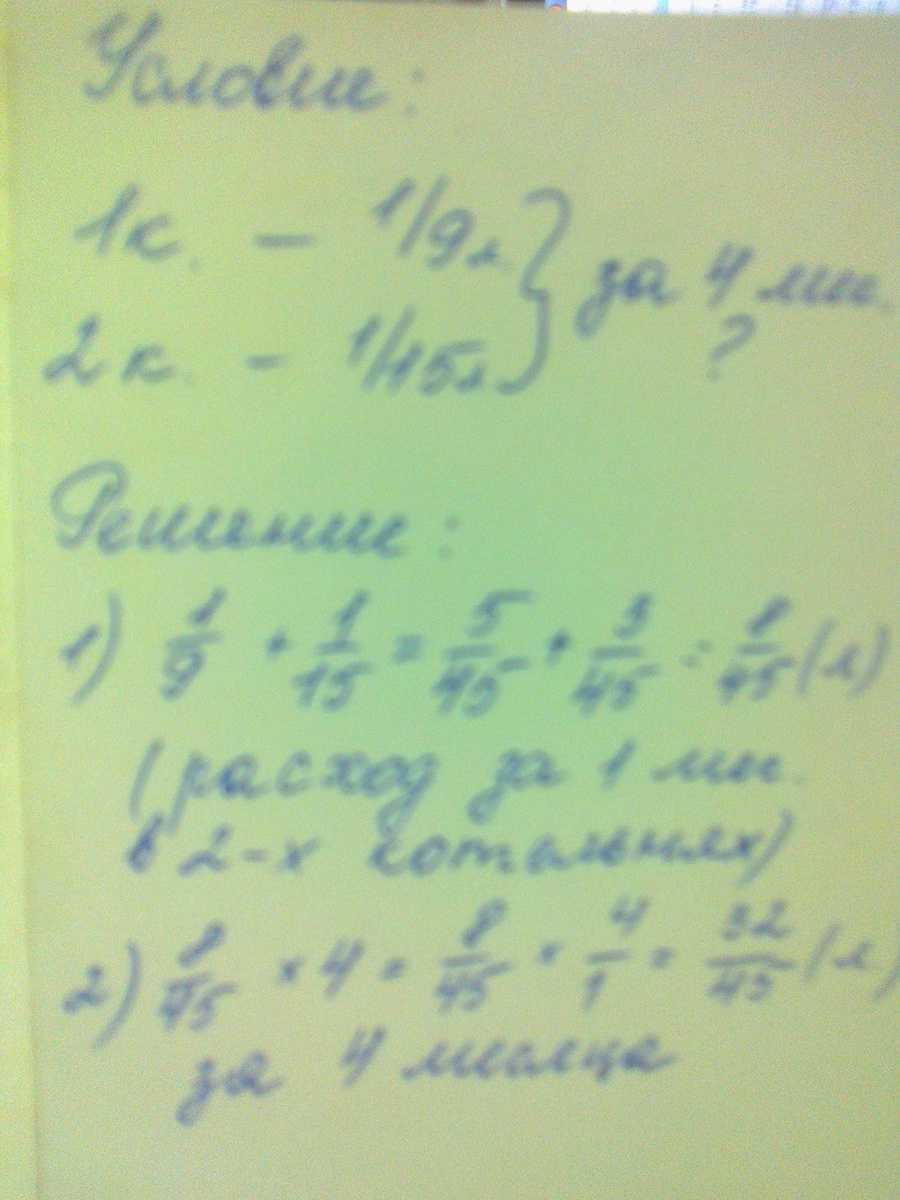 Условие:
1к. - 1/9л.
2к. - 1/15л.
} за 4 ми.
?
Решение:
1) 1/9 + 1/15 = 5/45 + 3/45 = 8/45 (л)
(расход за 1 ми.
в 2-х котельнях)
2) 8/45 × 4 = 8/45 × 4/1 = 32/45 (л)
за 4 месяца